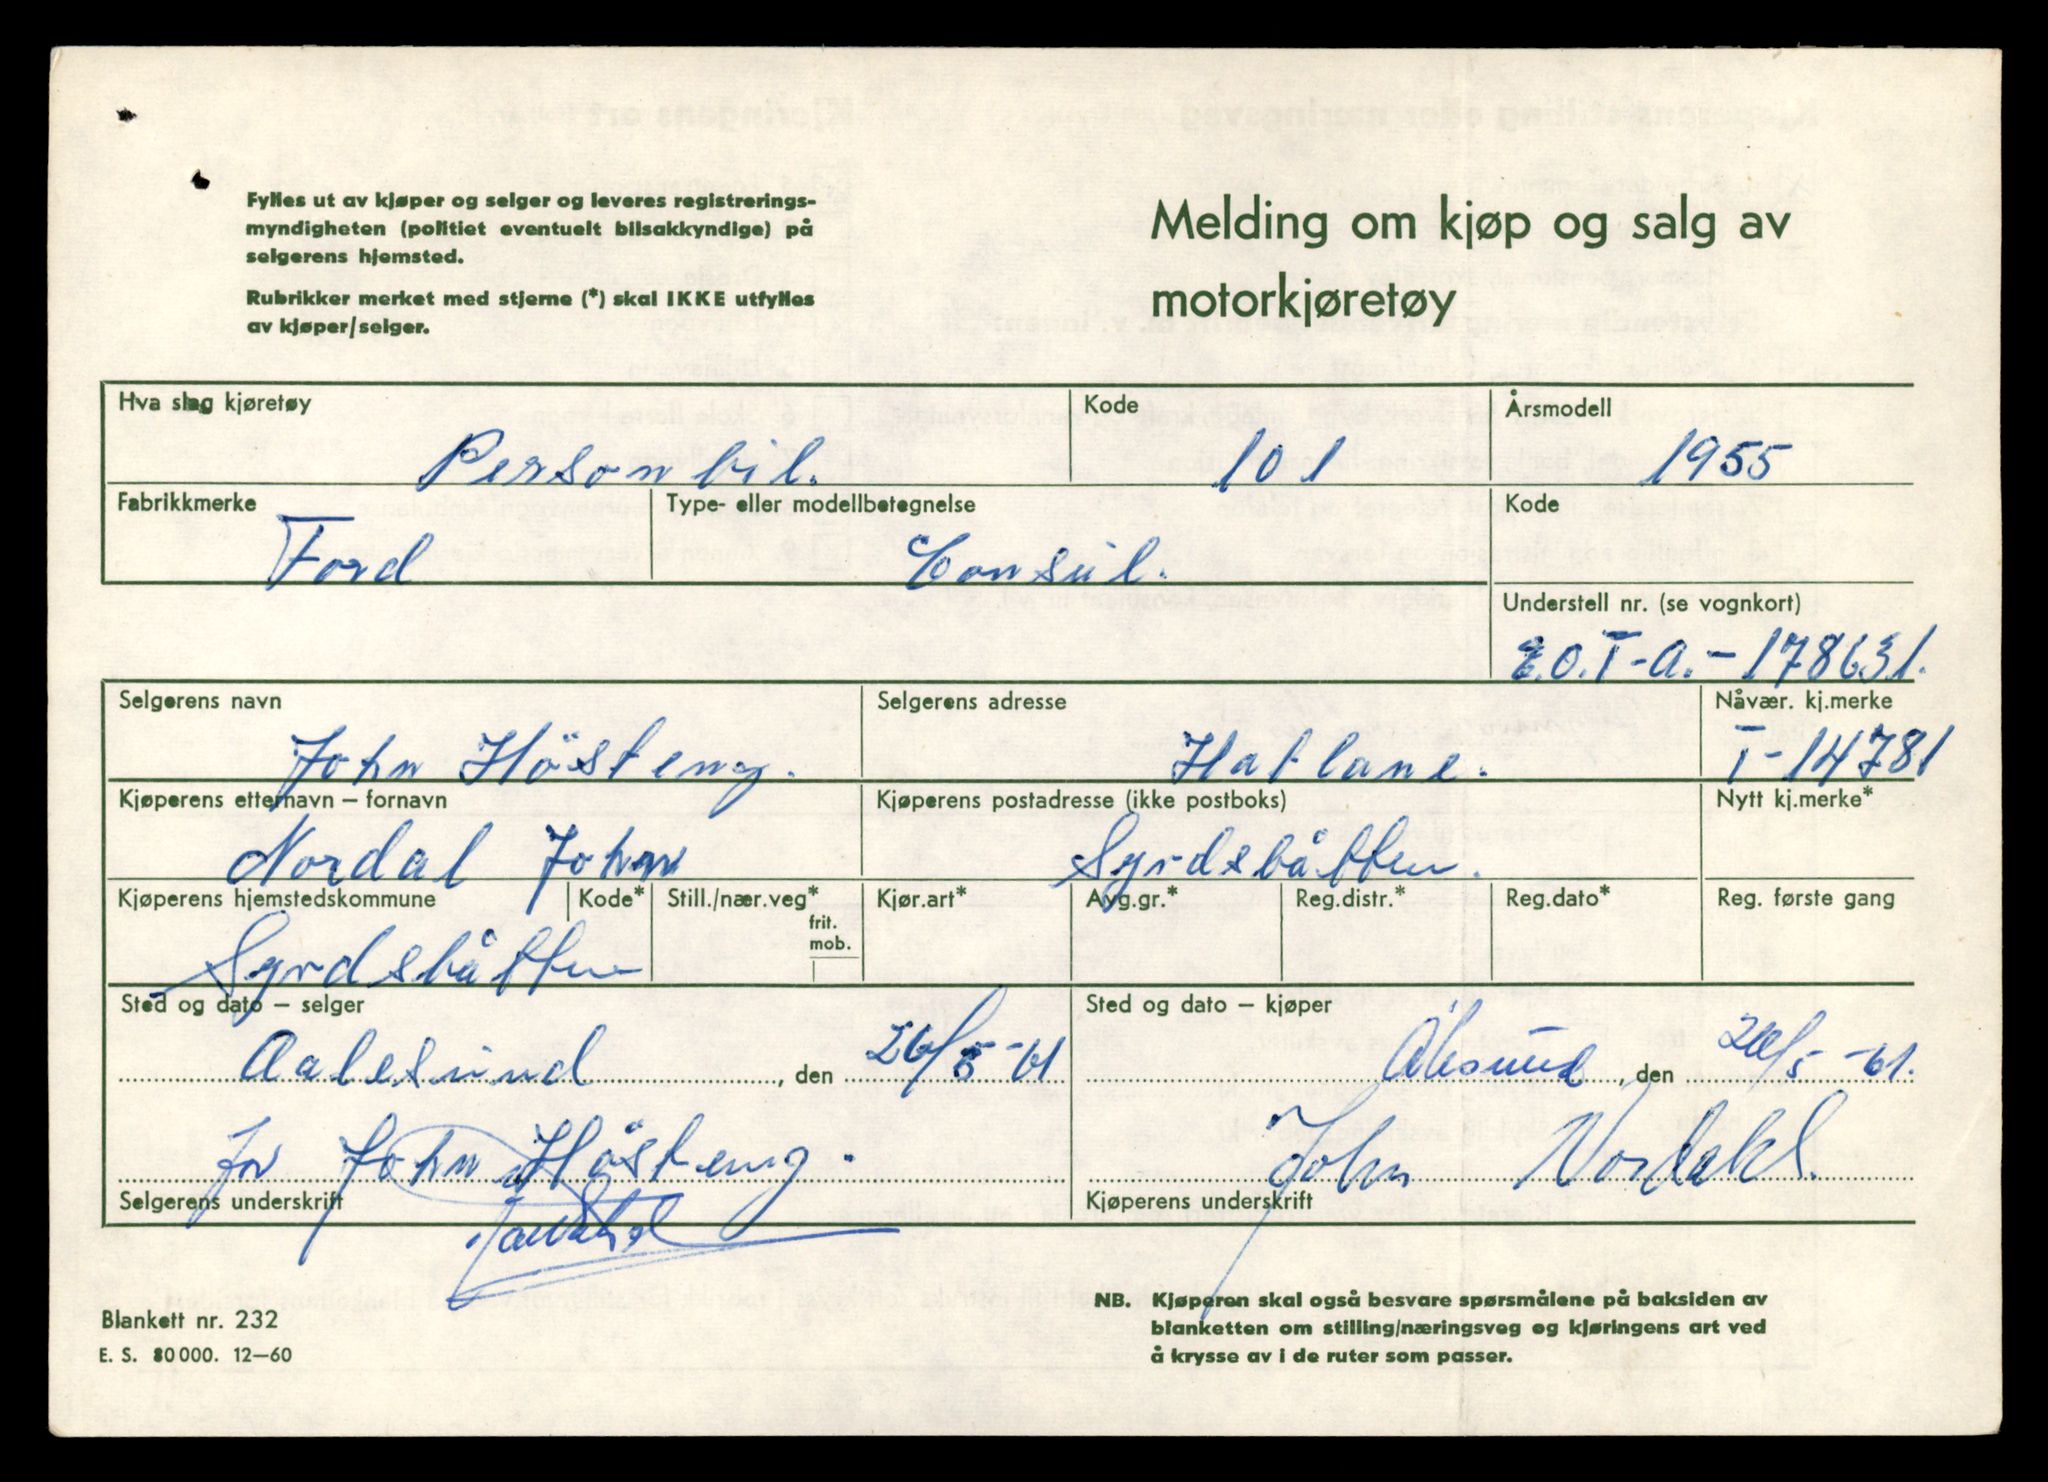 Fylles ut av kjøper og selger og leveres registrerings-
myndigheten (politiet eventuelt bilsakkyndige) på
selgerens hjemsted.
Rubrikker merket med stjerne (*) skal IKKE utfylles
av kjøper/selger.
Melding om kjøp og salg av
motorkjøretøy
Hva slag kjøretøy Kode Årsmodell
Personbil. 101 1955
Fabrikkmerke Type- eller modellbetegnelse Kode
Ford Consul.
Understell nr. (se vognkort)
E.O.T-A.-178631.
Selgerens navn Selgerens adresse Nåvær. kj.merke
John Hösteng. Hatlane. T-14781
Kjøperens etternavn – fornavn Kjøperens postadresse (ikke postboks) Nytt kj.merke*
Nordal John Syvdsbåtten.
Kjøperens hjemstedskommune Kode* Still./nær.veg* Kjør.art* Avg.gr.* Reg.distr.* Reg.dato* Reg. første gang
frit.
mob.
Syvdsbåtten
Sted og dato – selger Sted og dato – kjøper
Aalesund, den 26/5-61 Ålesund, den 26/5-61.
for John Hösteng. John Nordahl.
Selgerens underskrift Kjøperens underskrift
Blankett nr. 232
E. S. 80000. 12–60
NB. Kjøperen skal også besvare spørsmålene på baksiden av
blanketten om stilling/næringsveg og kjøringens art ved
å krysse av i de ruter som passer.